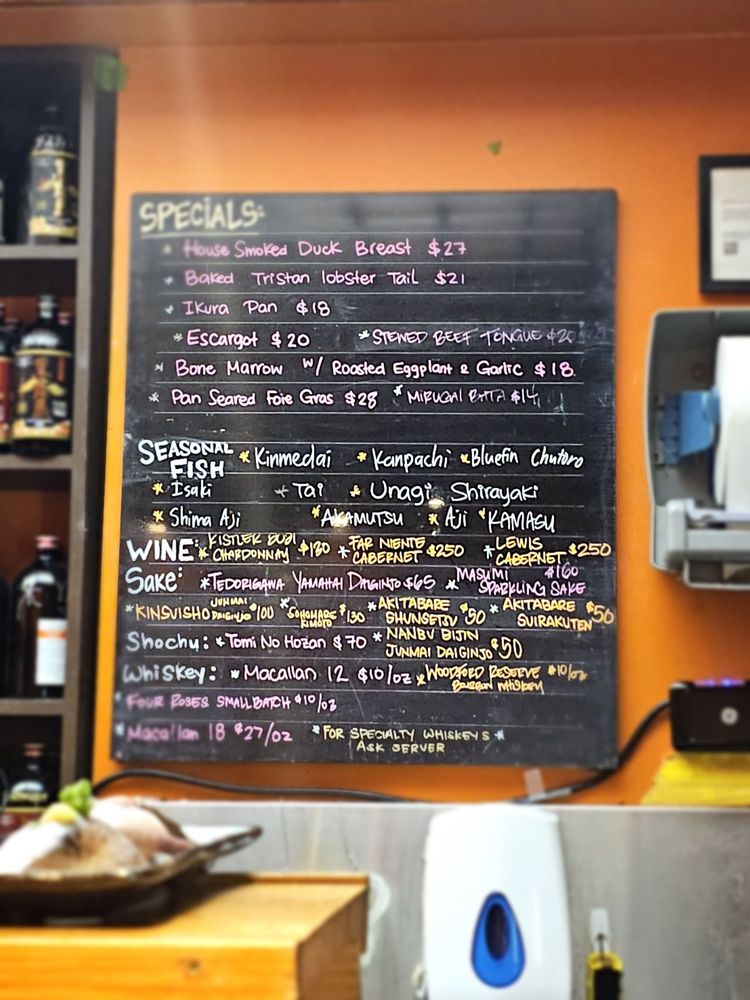 SPECIALS:
* House Smoked Duck Breast $27
* Baked Tristan lobster Tail $21
* Ikura Pan $18
* Escargot $20 * STEWED BEEF TONGUE $20
* Bone Marrow w/ Roasted Eggplant & Garlic $18
* Pan Seared Foie Gras $28 * MIRUGAI $14
SEASONAL FISH * Kinmedai * Kanpachi * Bluefin Chutoro
* Isaki * Tai * Unagi Shirayaki
* Shima Aji * AKAMUTSU * Aji * KAMASU
WINE: * KISTLER CHARDONNAY $130 * FAR NIENTE CABERNET $250 * LEWIS CABERNET $250
Sake: * TEDORIGAWA YAMAHAI DAIGINJO $65 * MASUMI SPARKLING SAKE $160
* KINSUISHO JUNMAI DAIGINJO $100 * SOHOMARE KIMOTO $130 * AKITABARE SHUNSETSU $50 * AKITABARE SUIRAKUTEN $50
Shochu: * Tomi No Hozan $70 * NANBU BIJIN JUNMAI DAIGINJO $50
Whiskey: * Macallan 12 $10/oz * WOODFORD RESERVE Bourbon Whiskey $10/oz
* FOUR ROSES SMALL BATCH $10/oz
* Macallan 18 $27/oz * FOR SPECIALTY WHISKEYS ASK SERVER *